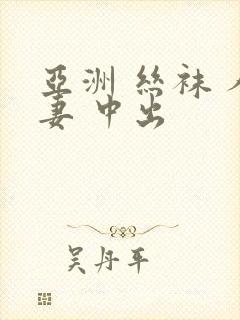 亞洲 絲袜 人
妻 中出
吴丹平